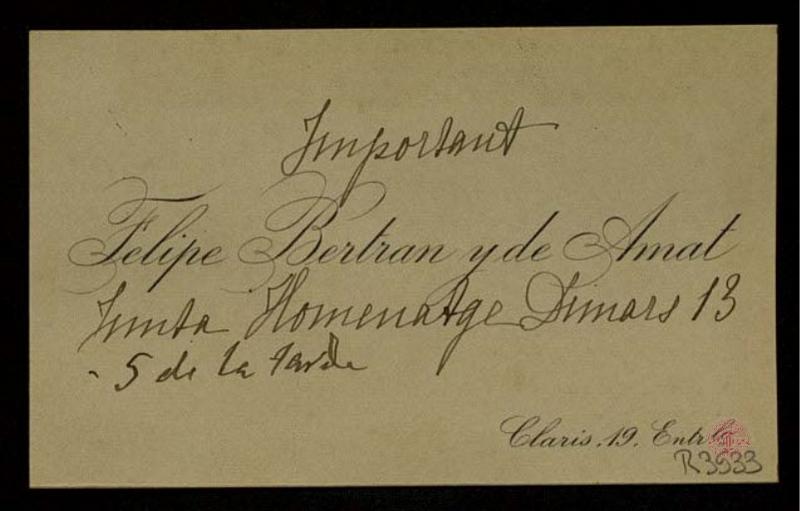 Important
Felipe Bertran y de Amat
Junta Homenatge Dimars 13
- 5 de la tarde
Claris, 19, Entr.lo
R3933